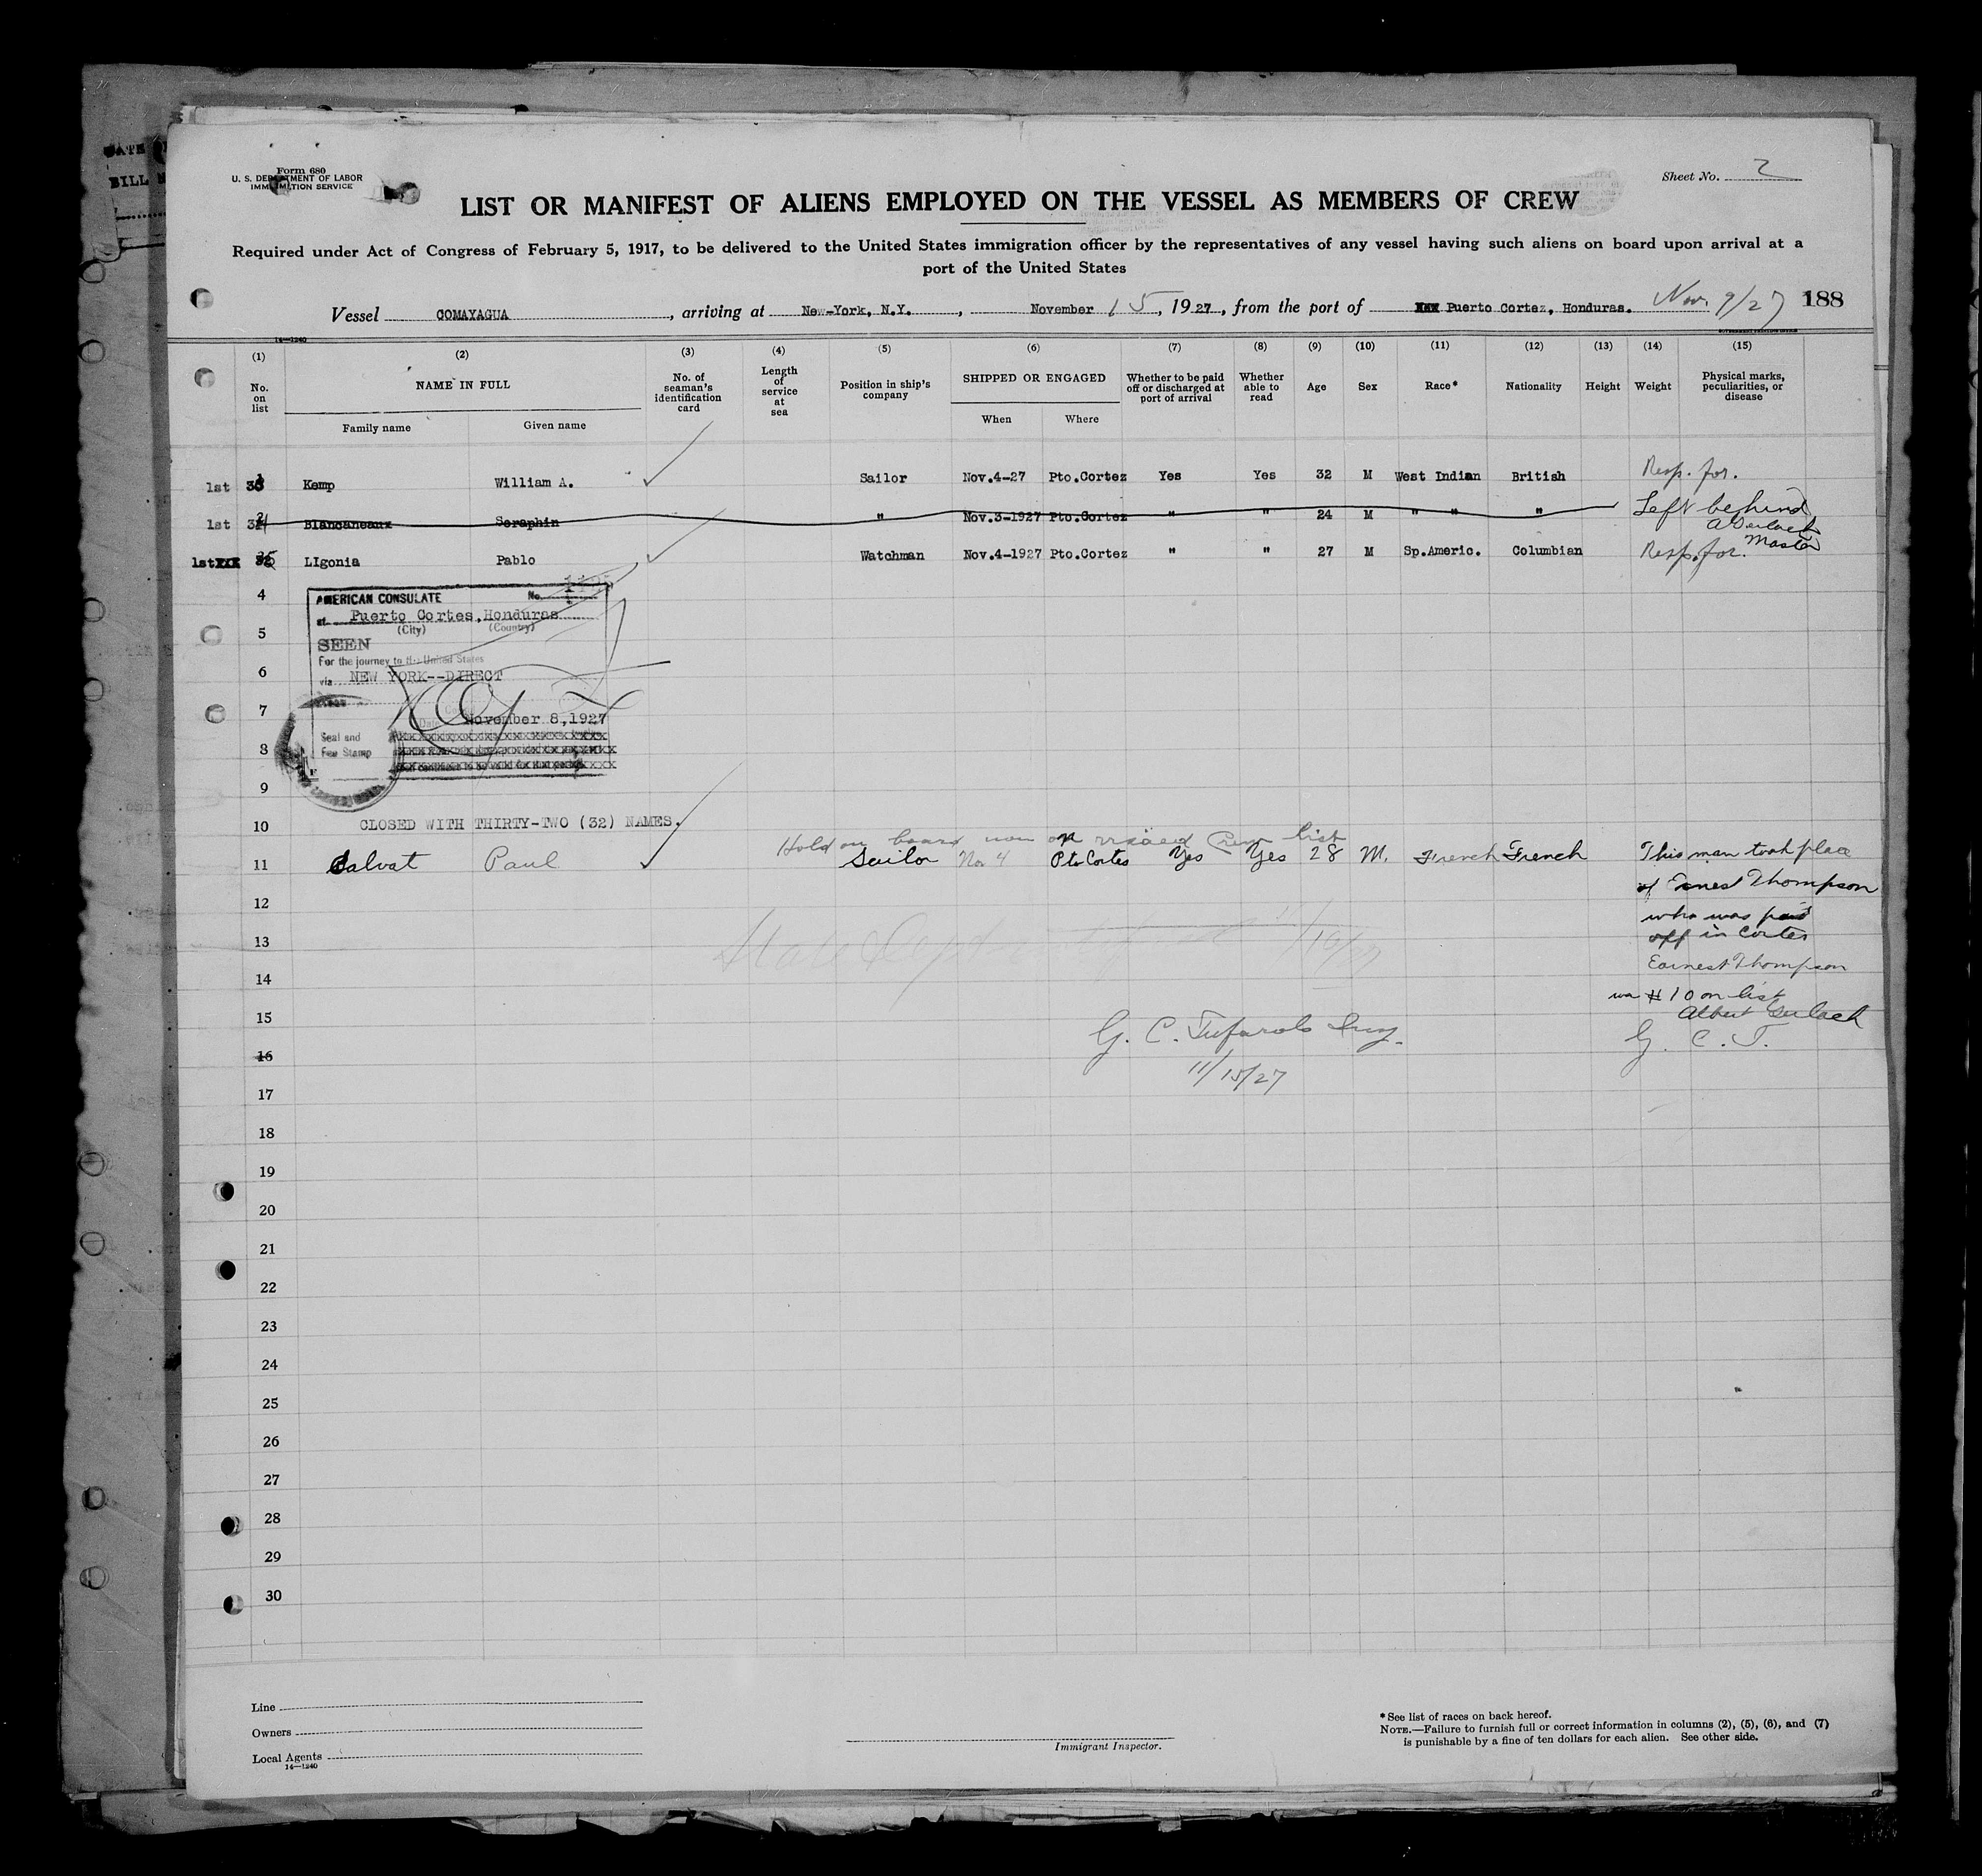 Form 680
U. S. DEPARTMENT OF LABOR
IMMIGRATION SERVICE
Sheet No. 2
LIST OR MANIFEST OF ALIENS EMPLOYED ON THE VESSEL AS MEMBERS OF CREW
Required under Act of Congress of February 5, 1917, to be delivered to the United States immigration officer by the representatives of any vessel having such aliens on board upon arrival at a
port of the United States
Vessel COMAYAGUA, arriving at New-York, N.Y., November 15, 1927, from the port of Puerto Cortez, Honduras. Nov. 9/27 188
14—1240
(1) (2) (3) (4) (5) (6) (7) (8) (9) (10) (11) (12) (13) (14) (15)
No. on list NAME IN FULL No. of seaman's identification card Length of service at sea Position in ship's company SHIPPED OR ENGAGED Whether to be paid off or discharged at port of arrival Whether able to read Age Sex Race* Nationality Height Weight Physical marks, peculiarities, or disease
Family name Given name When Where
1st Kemp William A. Sailor Nov.4-27 Pto.Cortez Yes Yes 32 M West Indian British Resp. for.
1st Blancaneaux Seraphin " Nov.3-1927 Pto.Cortez " " 24 M " " " Left behind
A Gerlach
Master
1st LIgonia Pablo Watchman Nov.4-1927 Pto.Cortez " " 27 M Sp.Americ. Columbian Resp. for.
4
AMERICAN CONSULATE No.
at Puerto Cortes, Honduras
(City) (Country)
5
SEEN
For the journey to the United States
6
via NEW YORK--DIRECT
7
November 8,1927
Seal and
Fee Stamp
8
9
10 CLOSED WITH THIRTY-TWO (32) NAMES.
Hold on board non on visaed Crew list
11 Salvat Paul Sailor Nov 4 Pto Cortes Yes Yes 28 M. French French This man took place
of Ernest Thompson
12
who was paid
13 off in Cortes
Earnest Thompson
14
was #10 on list
15 Albert Gerlach
G. C. Tufarolo Insp. G. C. T.
16
11/15/27
17
18
19
20
21
22
23
24
25
26
27
28
29
30
Line
Owners
Local Agents
14—1240
Immigrant Inspector.
* See list of races on back hereof.
NOTE.—Failure to furnish full or correct information in columns (2), (5), (6), and (7)
is punishable by a fine of ten dollars for each alien. See other side.